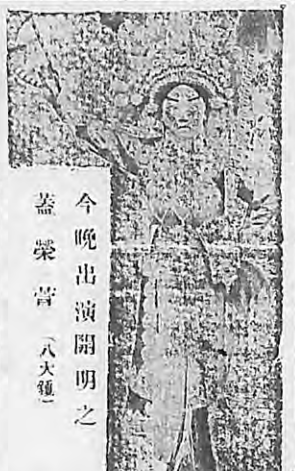 今晚出演開明之
蓋榮萱（八大鎚）